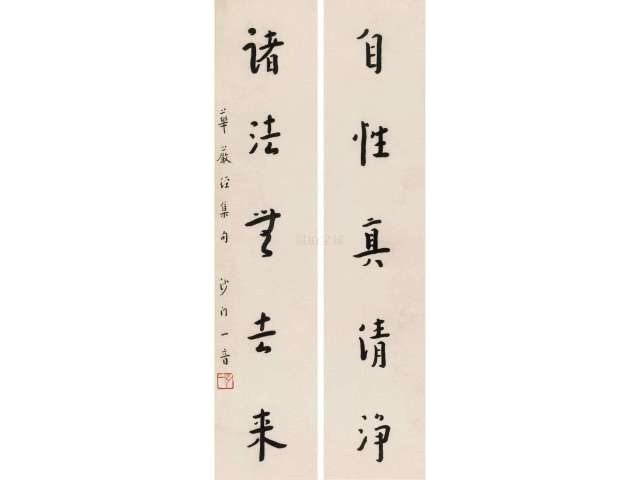 自性真清淨
诸法無去来
華嚴经集句 沙门一音